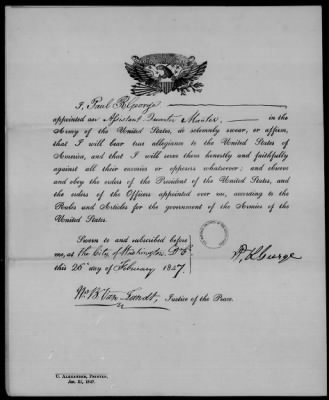 I, Paul R George
appointed an Assistant Quarter Master, in the
Army of the United States, do solemnly swear, or affirm,
that I will bear true allegiance to the United States of
America, and that I will serve them honestly and faithfully
against all their enemies or opposers whatsoever; and observe
and obey the orders of the President of the United States, and
the orders of the Officers appointed over me, according to the
Rules and Articles for the government of the Armies of the
United States.
Sworn to and subscribed before
me, at the City of Washington, D.C
this 26th day of February 1847.
P. R George
Justice of the Peace.
C. Alexander, Printer,
Jan. 21, 1847.